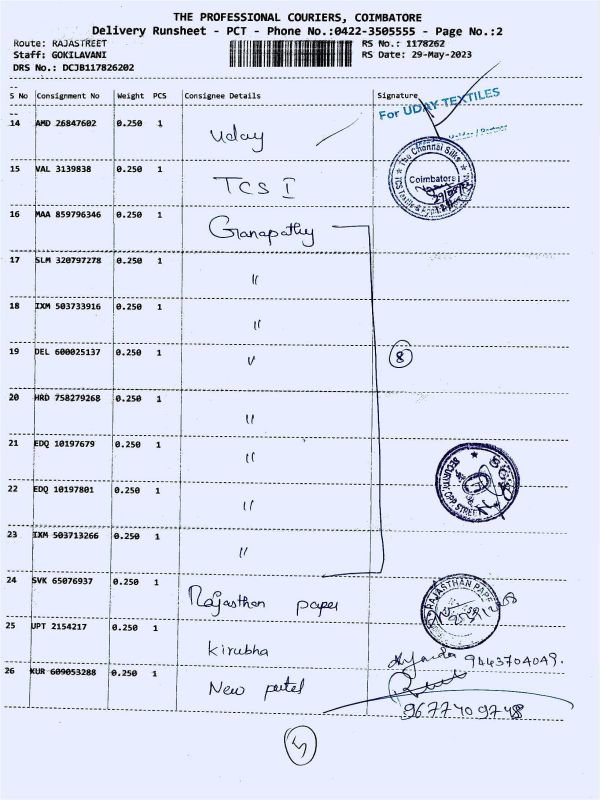 THE PROFESSIONAL COURIERS, COIMBATORE
Delivery Runsheet - PCT - Phone No.:0422-3505555 - Page No.:2
Route: RAJASTREET RS No.: 1178262
Staff: GOKILAVANI RS Date: 29-May-2023
DRS No.: DCJB117826202
S No Consignment No Weight PCS Consignee Details Signature
For UDAY TEXTILES
14 AMD 26847602 0.250 1 Uday
Partner
15 VAL 3139838 0.250 1 TCS I
The Chennai Silks
Coimbatore
16 MAA 859796346 0.250 1 Ganapathy
17 SLM 320797278 0.250 1 "
18 IXM 503733916 0.250 1 "
19 DEL 600025137 0.250 1 " 8
20 HRD 758279268 0.250 1 "
21 EDQ 10197679 0.250 1 "
22 EDQ 10197801 0.250 1 "
SECURITY OPP STREET
23 IXM 503713266 0.250 1 "
24 SVK 65076937 0.250 1 Rajasthan paper
RAJASTHAN PAPE
25 UPT 2154217 0.250 1 Kirubha
9443704049.
26 KUR 609053288 0.250 1 New patel
9677409748
5